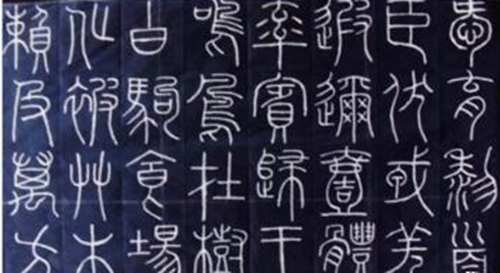 愛育黎首
臣伏戎羌
遐邇壹體
率賓歸王
鳴鳳在樹
白駒食場
化被艸木
賴及萬方